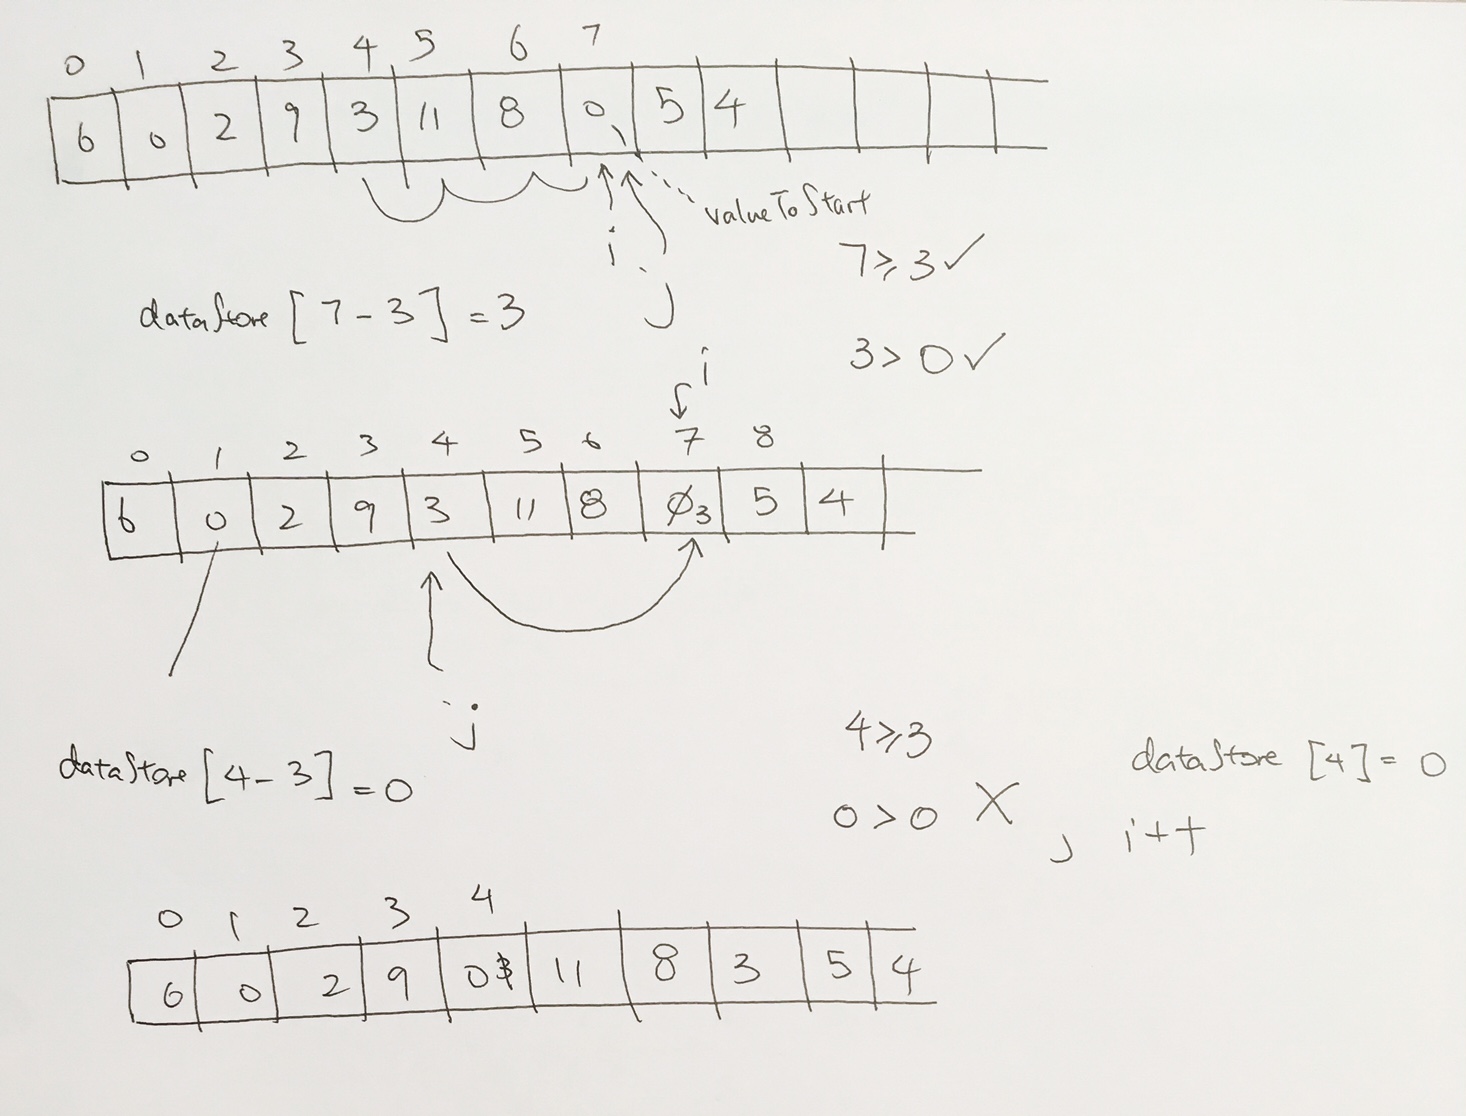 0 1 2 3 4 5 6 7
6 0 2 9 3 11 8 0 5 4
valueToStart
i
j
7≥3✓
dataStore [7-3] = 3
3>0✓
i
0 1 2 3 4 5 6 7 8
6 0 2 9 3 11 8 0 3 5 4
j
4≥3
dataStore [4-3] = 0
dataStore [4] = 0
0>0 X , i++
0 1 2 3 4
6 0 2 9 0 3 11 8 3 5 4